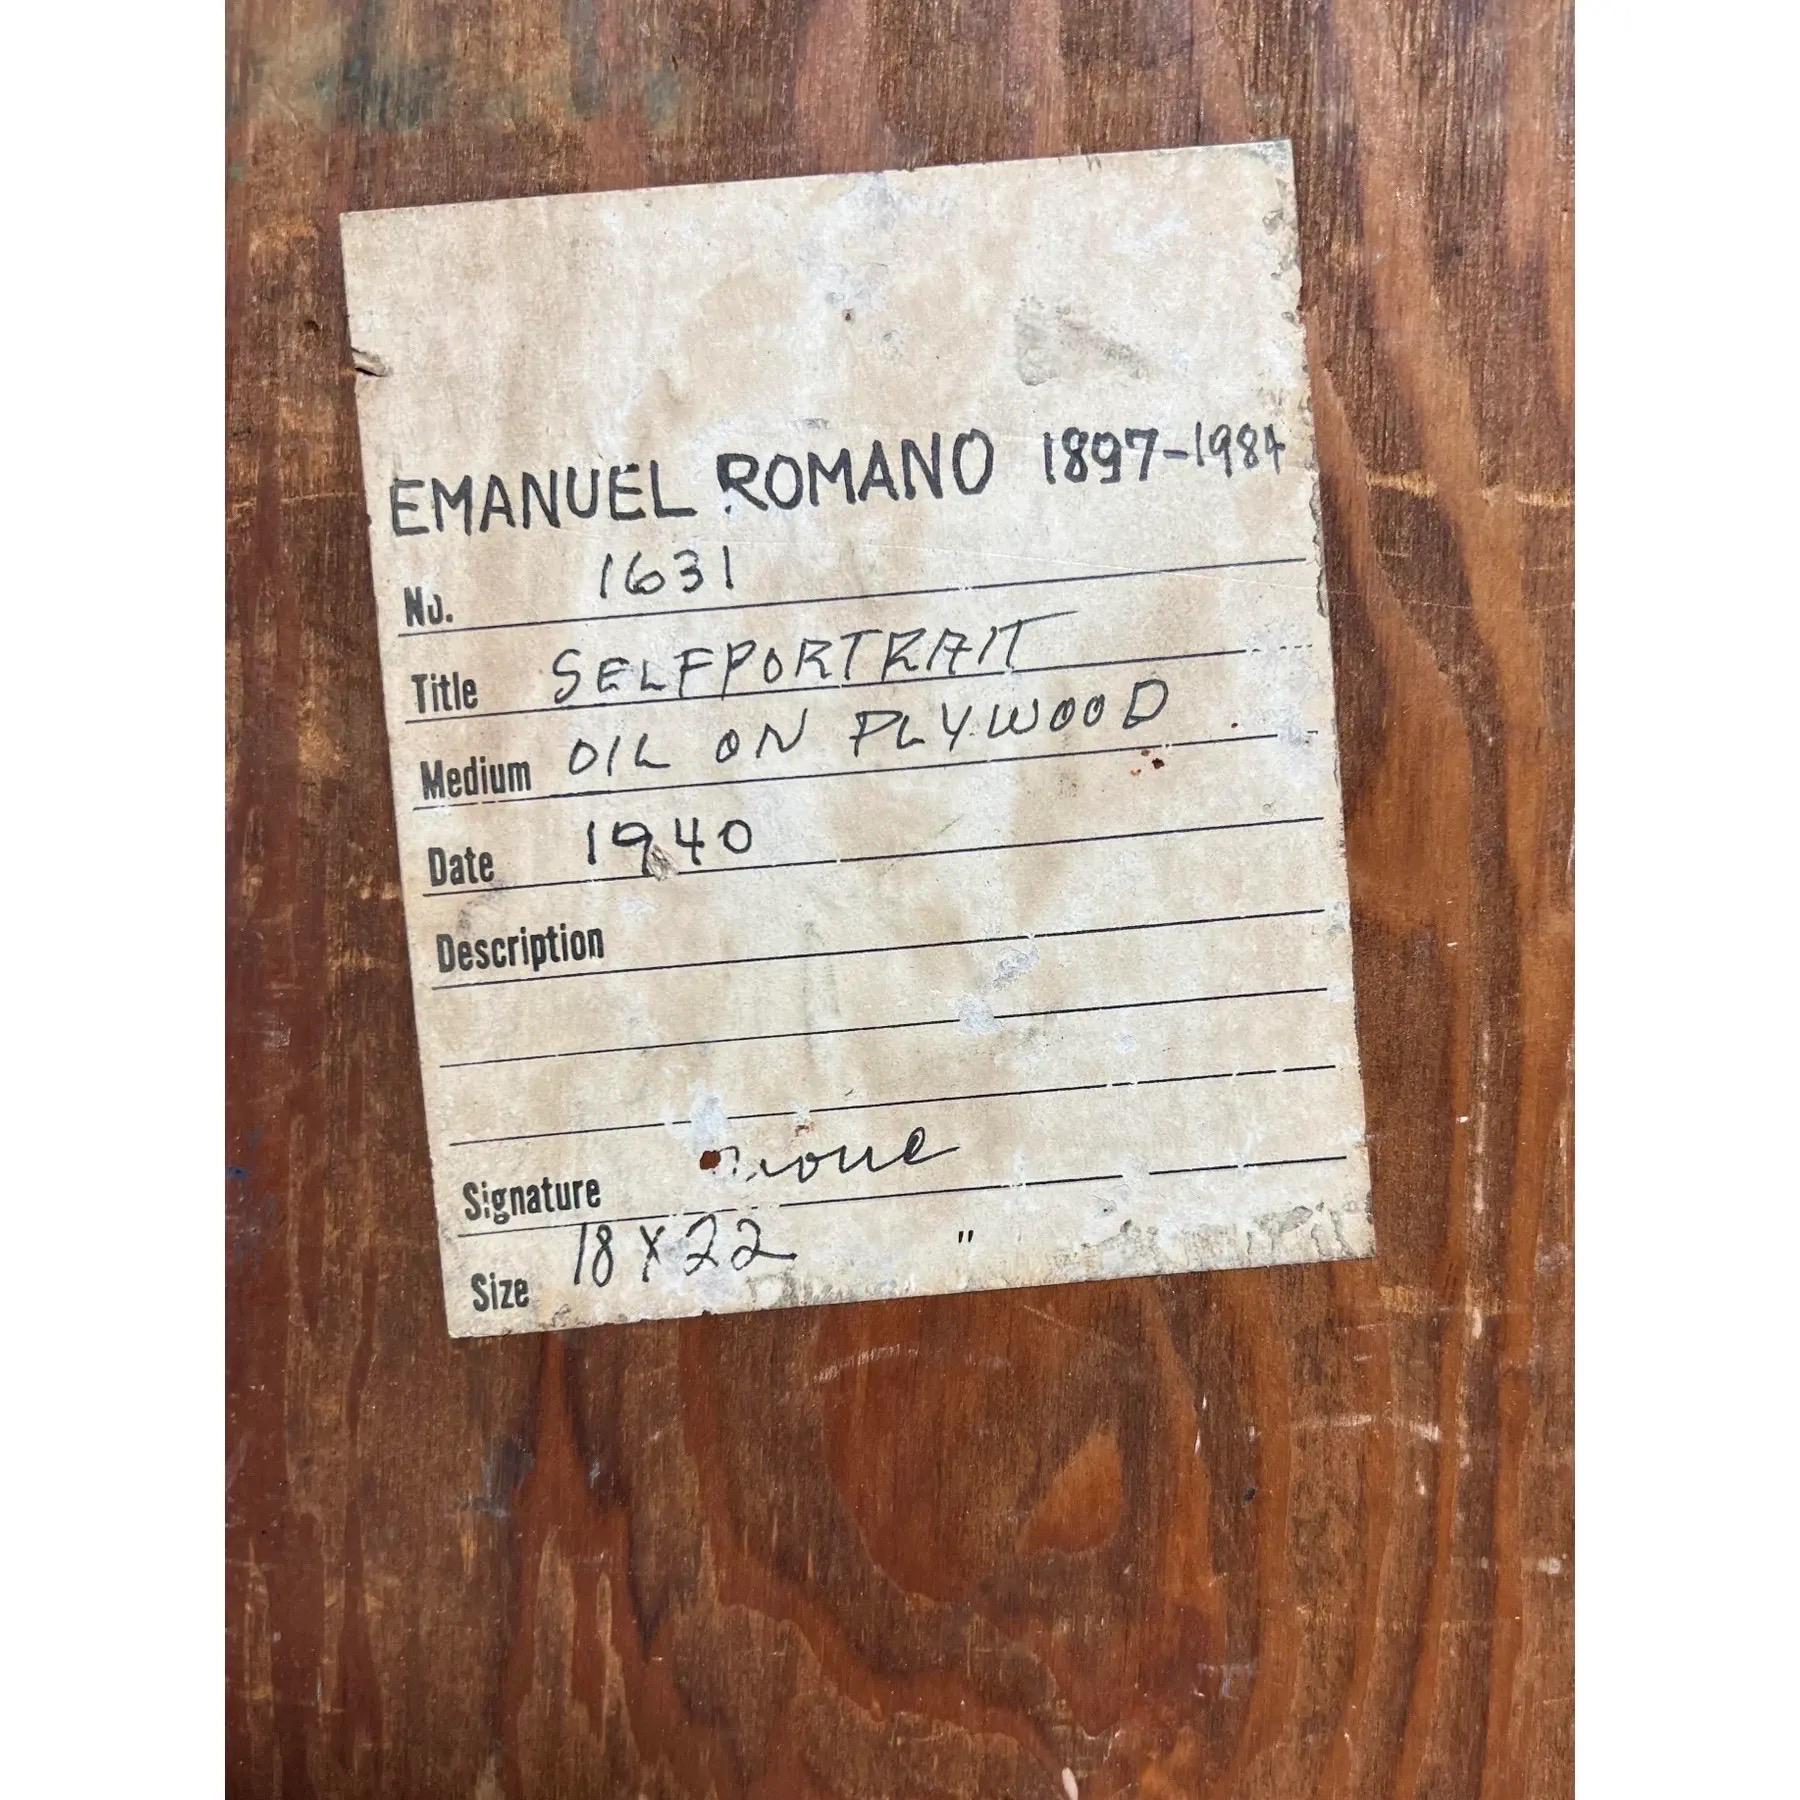 EMANUEL ROMANO 1897-1984
No. 1631
Title SELFPORTRAIT
Medium OIL ON PLYWOOD
Date 1940
Description
Signature none
Size 18 X 22 "